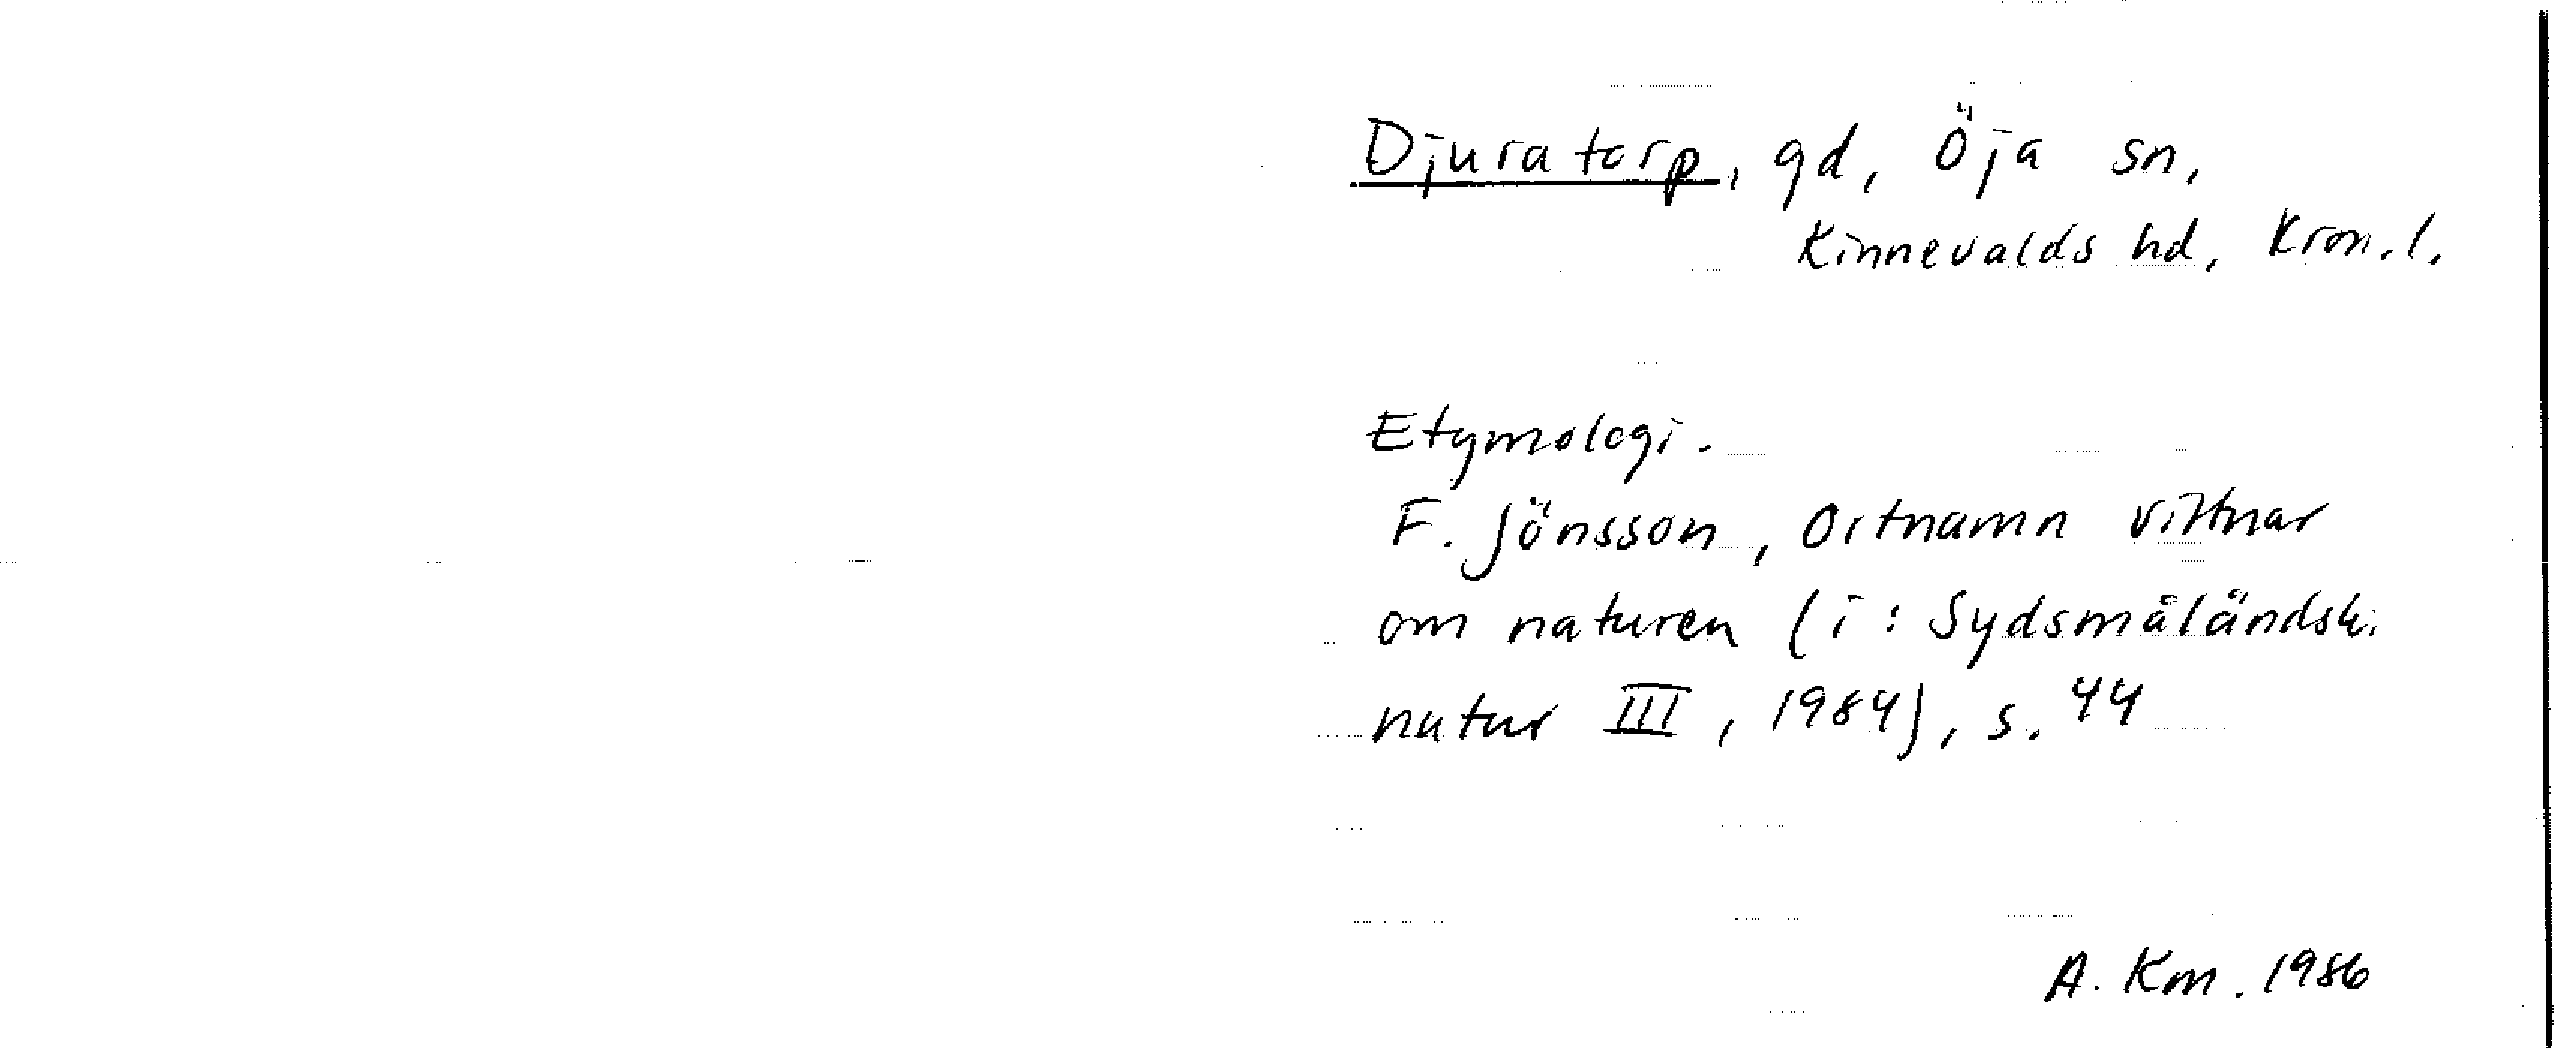 Djuratorp, gd, Öja sn,
Kinnevalds hd, Kron. l.
Etymologi.
F. Jönsson, Ortnamn vittnar
om naturen (i: Sydsmåländsk.
natur III, 1984), s. 44
A. Km. 1986